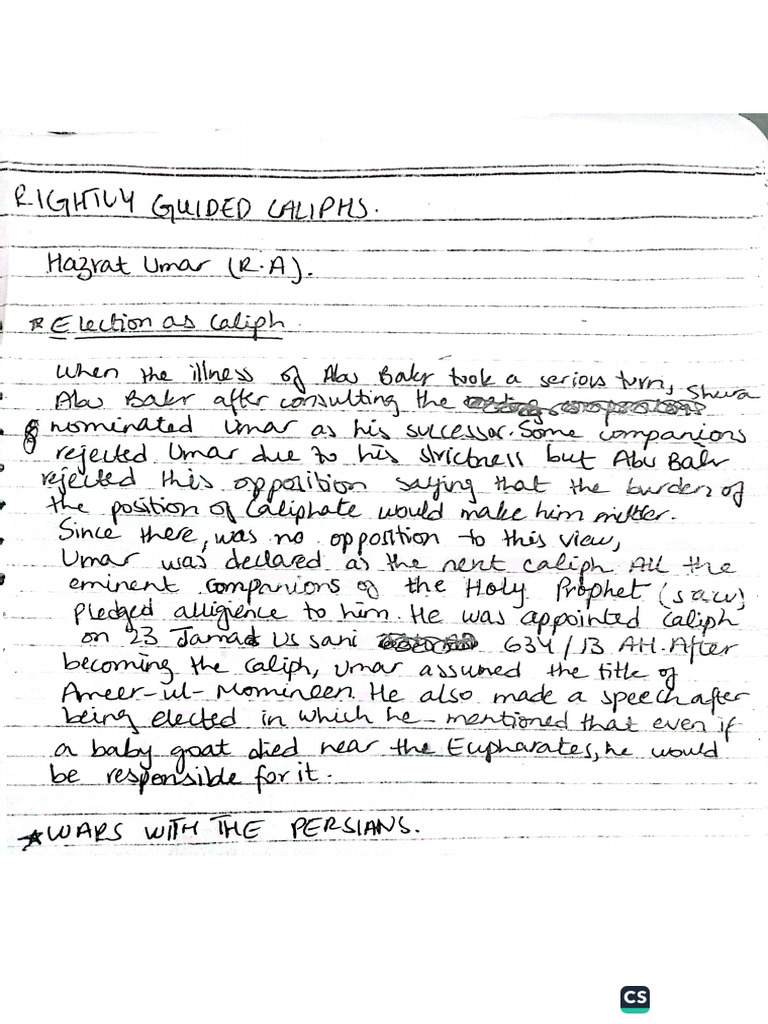 RIGHTLY GUIDED CALIPHS.
Hazrat Umar (R.A).
* Election as Caliph.
When the illness of Abu Bakr took a serious turn,
Abu Bakr after consulting the Shura
nominated Umar as his successor. Some companions
rejected Umar due to his strictness but Abu Bakr
rejected this opposition saying that the burden of
the position of Caliphate would make him milder.
Since there, was no opposition to this view,
Umar was declared as the next caliph. All the
eminent companions of the Holy Prophet (s.a.w)
pledged alligience to him. He was appointed caliph
on 23 Jamad us sani 634/13 AH. After
becoming the caliph, Umar assumed the title of
Ameer-ul-Momineen. He also made a speech after
being elected in which he mentioned that even if
a baby goat died near the Eupharates, he would
be responsible for it.
* WARS WITH THE PERSIANS.
CS